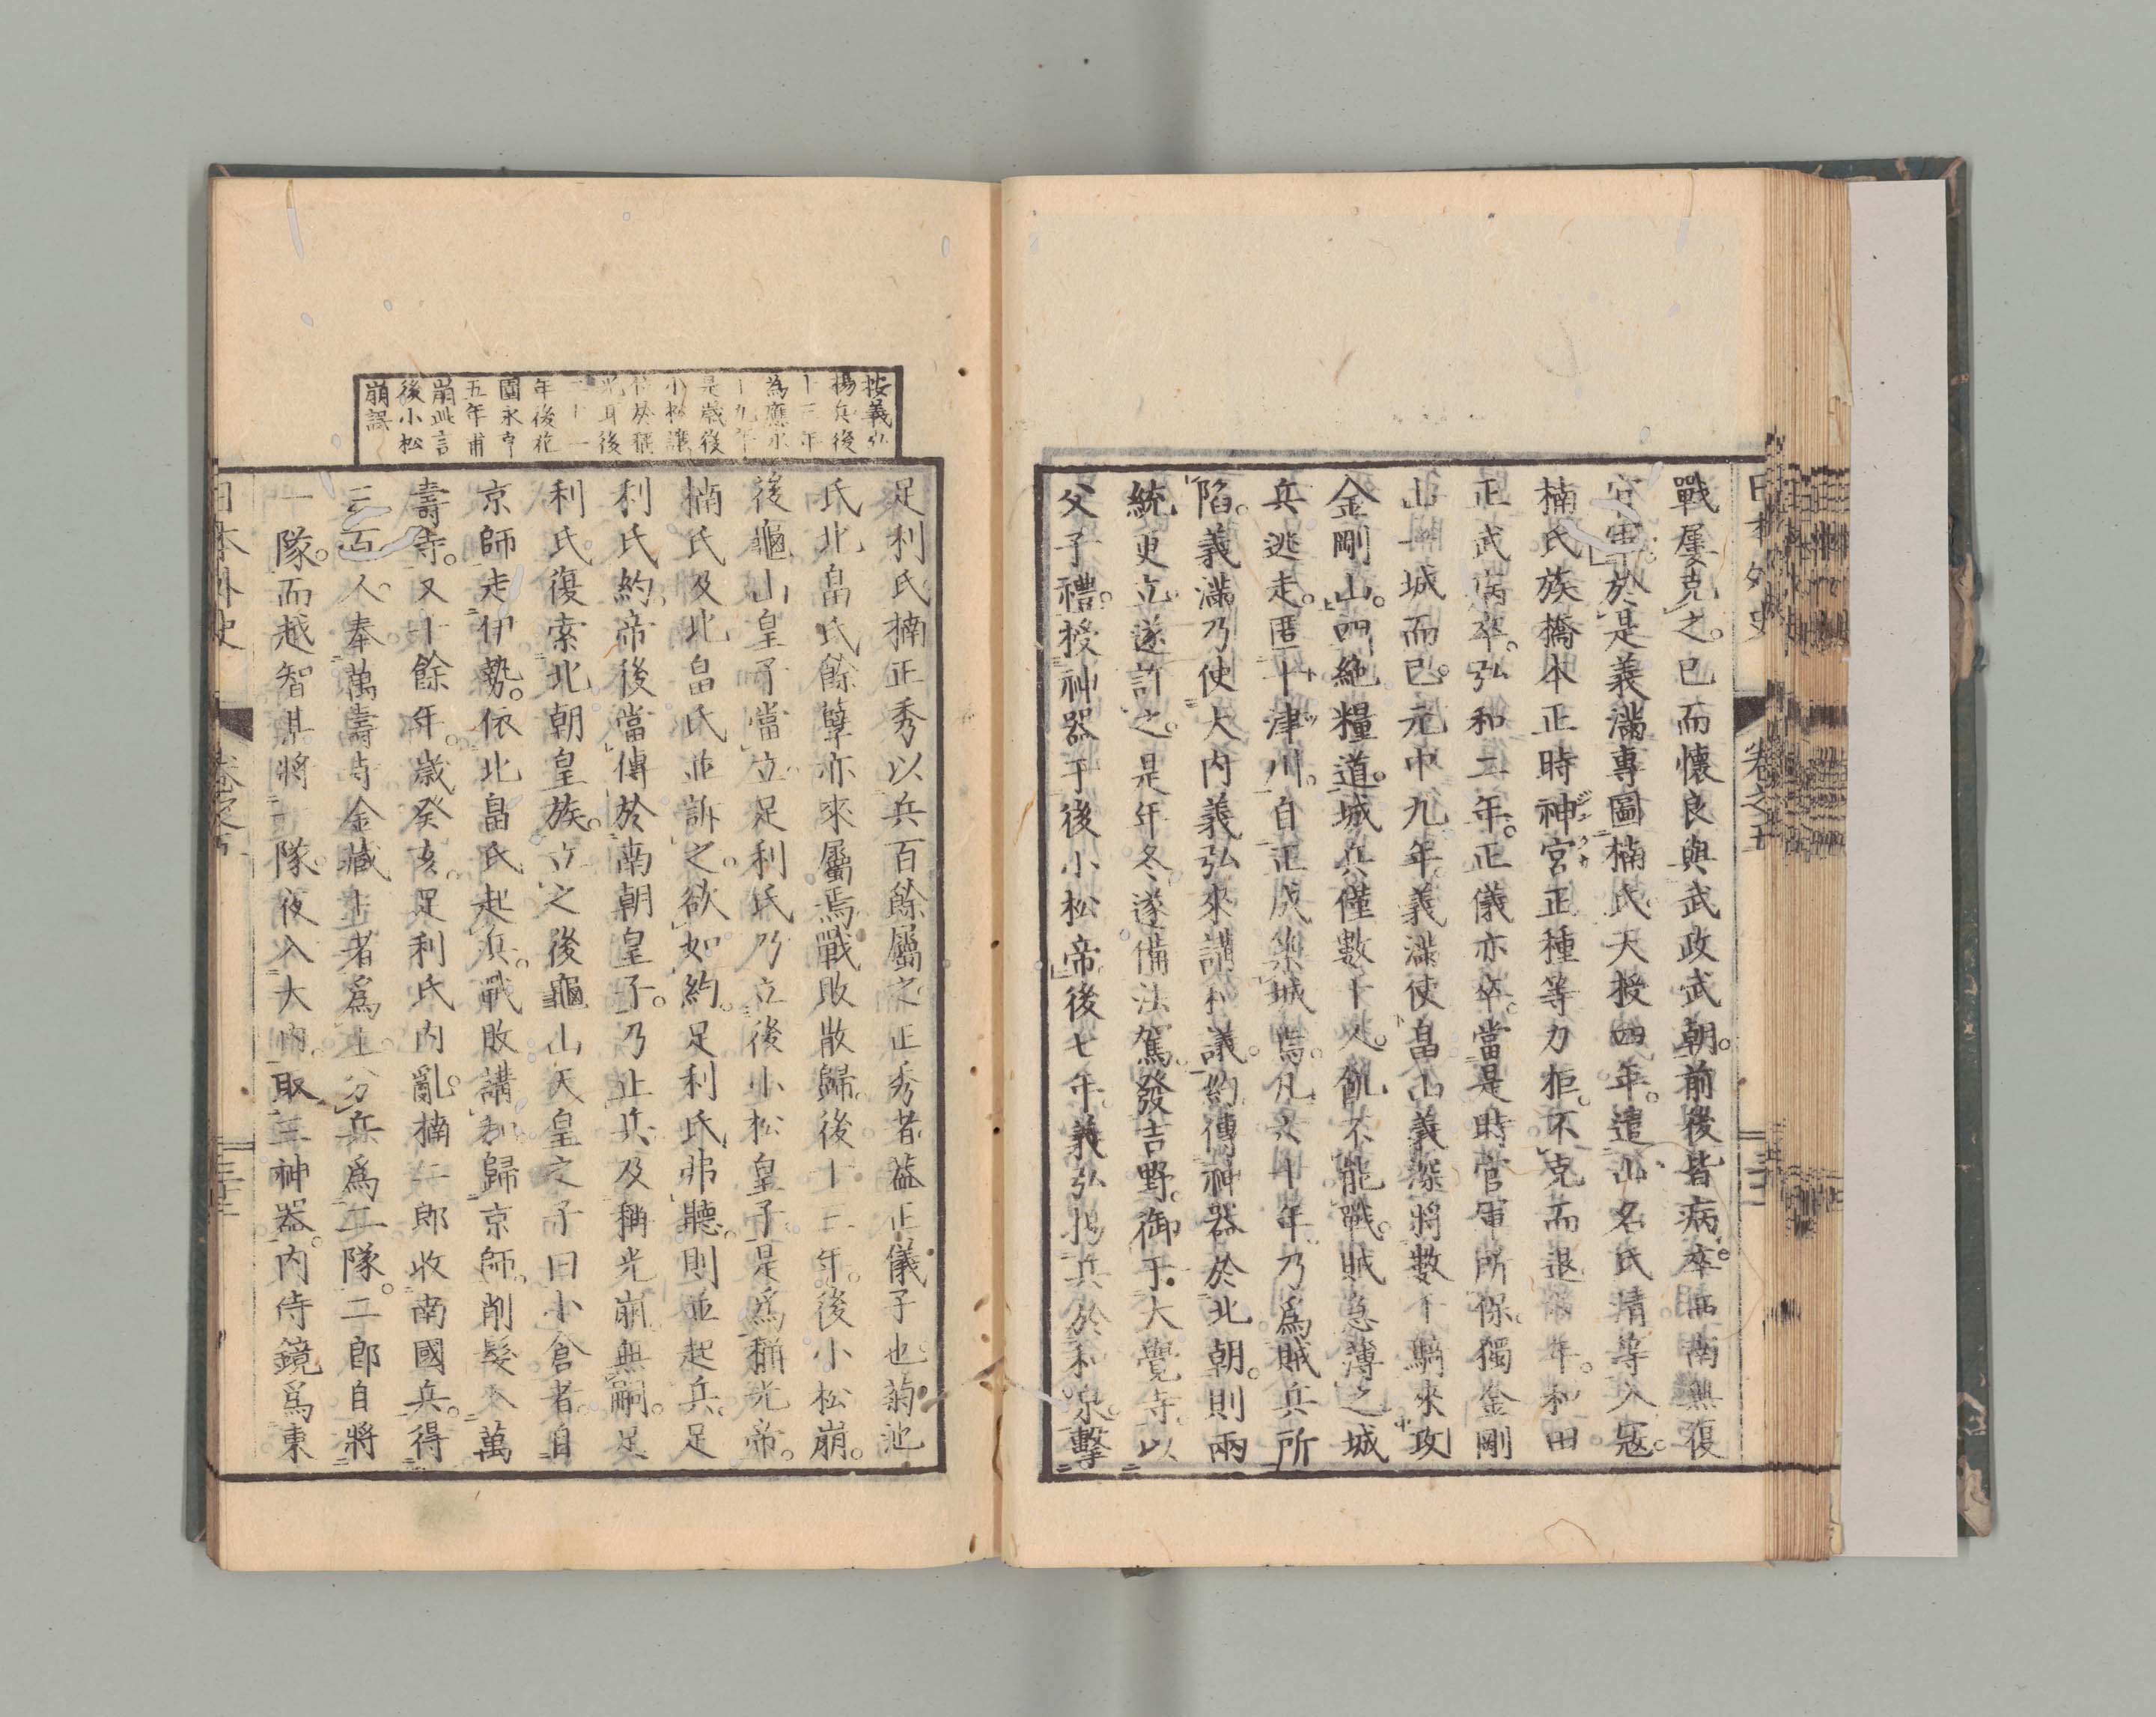 日本外史
卷之五
戰屢克之。已而懷良與武政武朝。前後皆病卒。西南無復
官軍。於是義滿專圖楠氏。天授四年。遣山名氏清等入寇。
楠氏族橋本正時神宮正種等力拒。不克而退。 年。和田
正武病卒。弘和二年。正儀亦卒。當是時官軍所保。獨金剛
山一城而已。元中九年。義滿使畠山義深將數千騎來攻
金剛山。四絶糧道。城兵僅數十人。飢不能戰。賊急薄之。城
兵逃走。匿十津川。自正成築城焉。凡六十年。乃爲賊兵所
陷。義滿乃使大内義弘來講和議。約傳神器於北朝。則兩
統更立。遂許之。是年冬。遂備法駕。發吉野。御于大覺寺。以
父子禮。授神器于後小松帝。後七年。義弘揚兵於和泉。擊
足利氏。楠正秀以兵百餘屬之。正秀者。蓋正儀子也。菊池
氏北畠氏餘孽亦來屬焉。戰敗散歸。後十三年。後小松崩。
後龜山皇子當立。足利氏乃立後小松皇子。是爲稱光帝。
楠氏及北畠氏並訴之。欲如約。足利氏弗聽。則並起兵。足
利氏約。帝後當傳於南朝皇子。乃止兵。及稱光崩。無嗣。足
利氏復索北朝皇族。立之。後龜山天皇之子曰小倉者。自
京師走伊勢。依北畠氏起兵。戰敗講和。歸京師。削髮入萬
壽寺。又十餘年。歲癸亥。足利氏内亂。楠二郎收南國兵。得
三百人。奉萬壽寺金藏主者爲主。分兵爲二隊。二郎自將
一隊。而越智某將一隊。夜入大内。取三神器。内侍鏡爲東
按義弘
揚兵後
十三年
爲應永
十九年
是歲後
小松讓
位於稱
光耳後
二十一
年後花
園永享
五年甫
崩此言
後小松
崩誤
日本外史